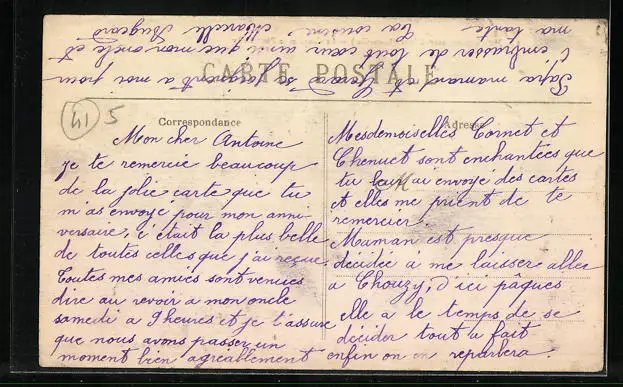 CARTE POSTALE
Correspondance
Adresse
41 5
Mon cher Antoine
je te remercie beaucoup
de la jolie carte que tu
m'as envoyé pour mon anni-
versaire, c'était la plus belle
de toutes celles que j'ai reçue
Toutes mes amies sont venues
dire au revoir a mon oncle
samedi a 9 heures et je t'assure
que nous avons passer un
moment bien agreablement
Mesdemoiselles Cornet et
Chenuet sont enchantées que
tu leur ai envoyé des cartes
et elles me prient de te
remercier.
Maman est presque
décidée à me laisser aller
a Chouzy, d'ici pâques
elle a le temps de se
décider tout a fait
enfin on en reparlera.
Papa maman et se joignent a moi pour
t'embrasser de tout cœur ainsi que mon oncle et
ma tante
Ta cousine, Marcelle